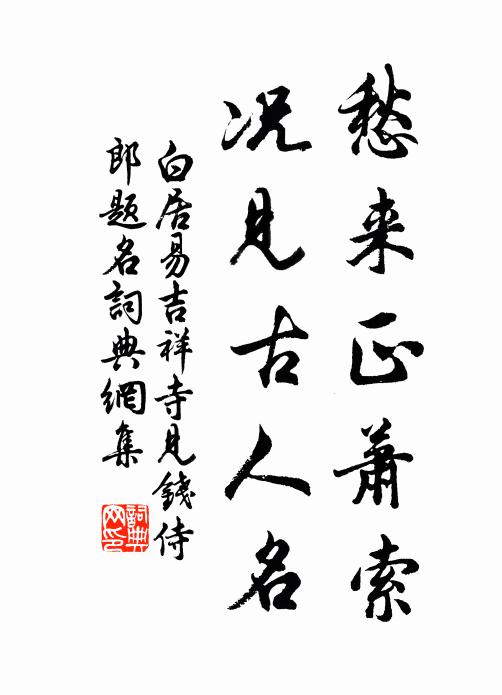 愁来正萧索
况见古人名
白居易吉祥寺見錢侍
郎題名詞典網集
詞典
网印